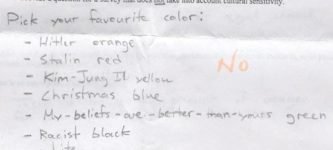 question for a survey that does not take into account cultural sensitivity.
Pick your favourite color:
- Hitler orange
- Stalin red
No
- Kim-Jung Il yellow
- Christmas blue
- My-beliefs-are-better-than-yours green
- Racist black